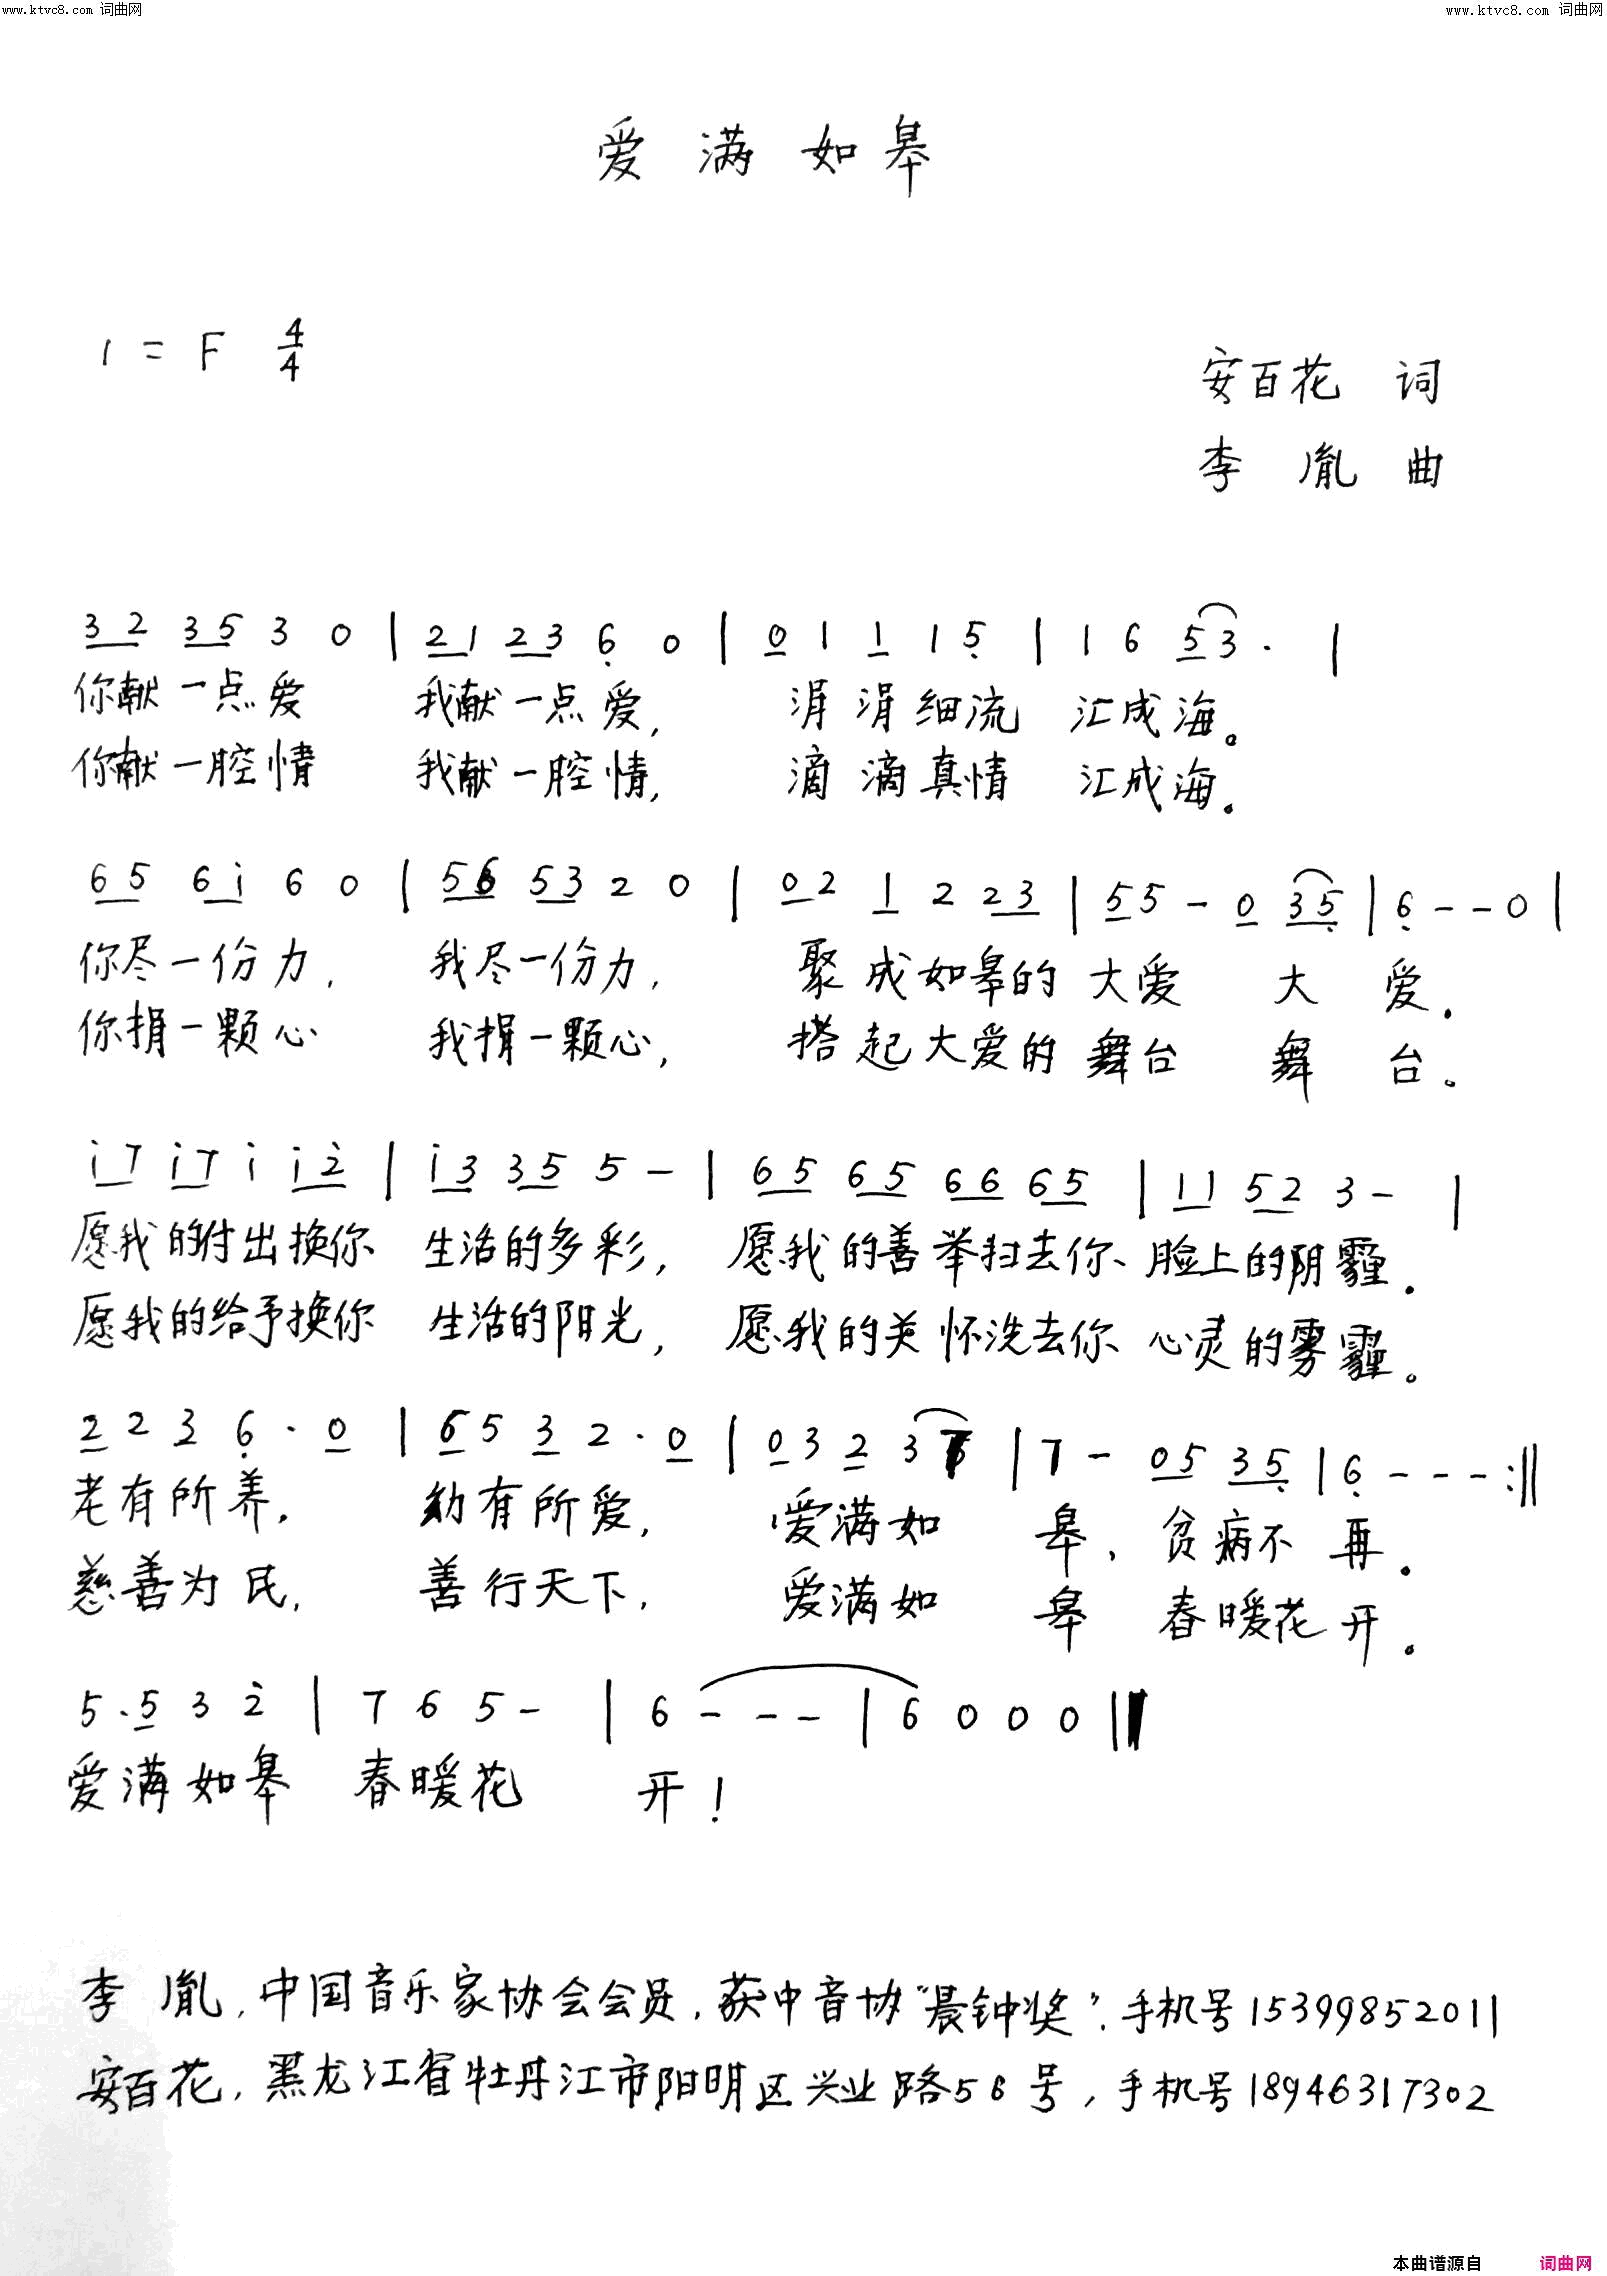 www.ktvc8.com 词曲网 www.ktvc8.com 词曲网
爱满如皋
1=F 4/4
安百花 词
李胤 曲
3 2 3 5 3 0 | 2 1 2 3 6 0 | 0 1 1 1 5 | 1 6 5 3 · |
你献一点爱 我献一点爱, 涓涓细流 汇成海。
你献一腔情 我献一腔情, 滴滴真情 汇成海。
6 5 6 i 6 0 | 5 6 5 3 2 0 | 0 2 1 2 2 3 | 5 5 - 0 3 5 | 6 - - 0 |
你尽一份力, 我尽一份力, 聚成如皋的 大爱 大 爱.
你捐一颗心 我捐一颗心, 搭起大爱的 舞台 舞 台。
i 7 i 7 i i 2 | i 3 3 5 5 - | 6 5 6 5 6 6 6 5 | 1 1 5 2 3 - |
愿我的付出换你 生活的多彩, 愿我的善举扫去你、脸上的阴霾.
愿我的给予换你 生活的阳光, 愿我的关怀洗去你 心灵的雾霾。
2 2 3 6 · 0 | 6 5 3 2 · 0 | 0 3 2 3 | 7 - 0 5 3 5 | 6 - - - :||
老有所养. 幼有所爱, 爱满如皋, 贫病不再.
慈善为民, 善行天下, 爱满如皋 春暖花开。
5 · 5 3 2 | 7 6 5 - | 6 - - - | 6 0 0 0 ||
爱满如皋 春暖花 开!
李胤,中国音乐家协会会员,获中音协“晨钟奖”.手机号15399852011
安百花,黑龙江省牡丹江市阳明区兴业路56号,手机号18946317302
本曲谱源自 词曲网